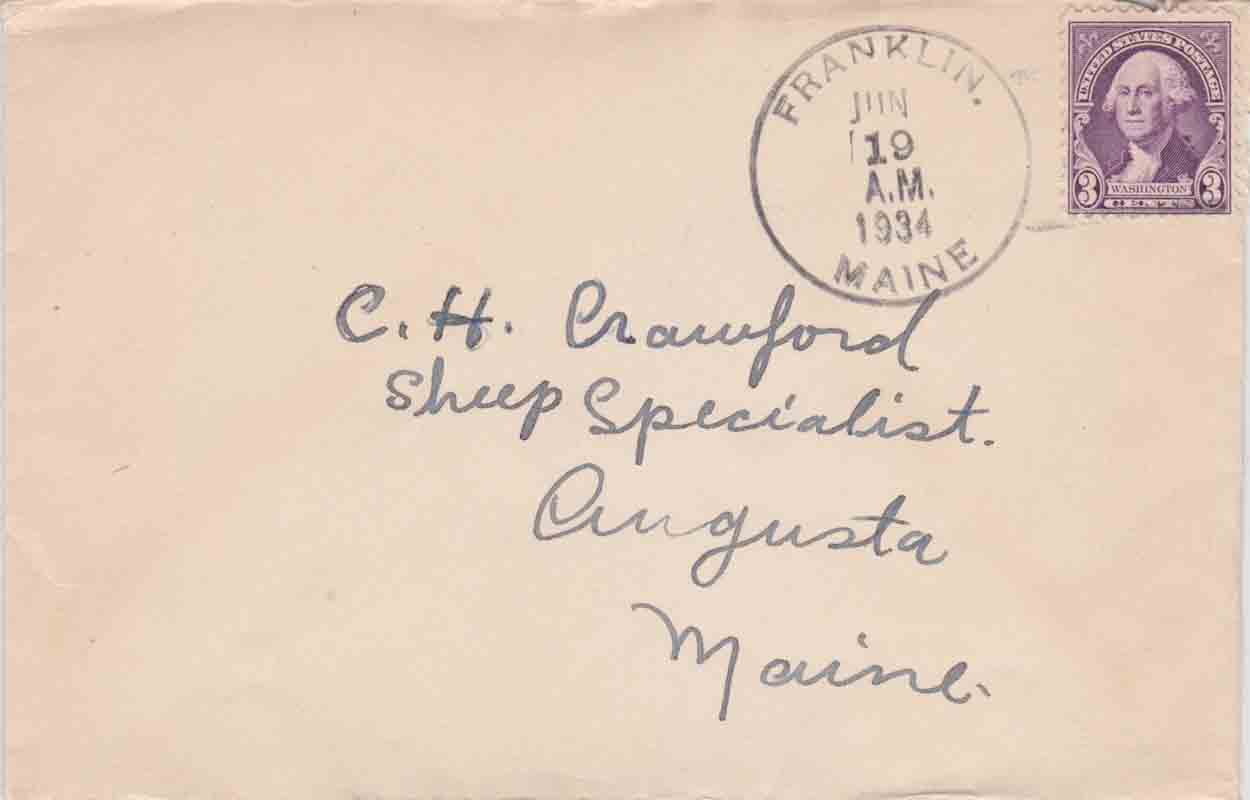 FRANKLIN.
JUN
19
A.M.
1934
MAINE
UNITED STATES POSTAGE
3 WASHINGTON 3
CENTS
C. H. Crawford
Sheep Specialist.
Augusta
Maine.